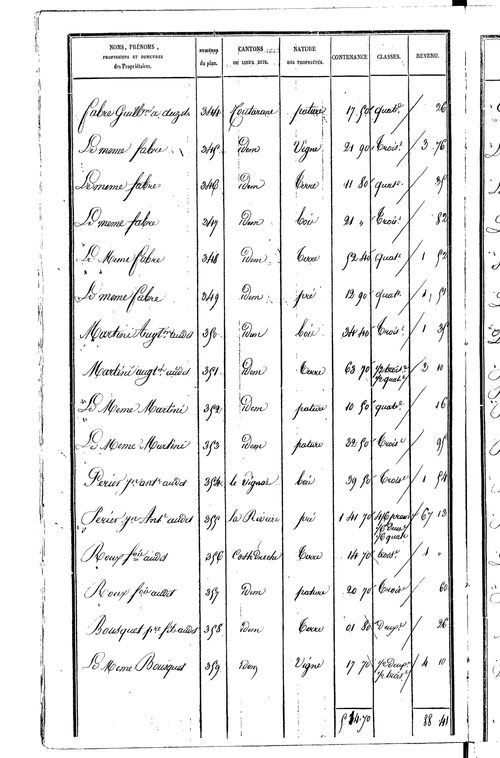 NOMS, PRÉNOMS, PROFESSIONS ET DEMEURES des Propriétaires. NUMÉROS du plan. CANTONS OU LIEUX DITS. NATURE DES PROPRIÉTÉS. CONTENANCE. CLASSES. REVENU.
fabre Guill.me a audet 344 pature 17 50 quat.e 26
Le meme fabre 345 idem Vigne 21 90 trois.e 3 76
Le meme fabre 346 idem terre 11 80 quat.e 35
Le meme fabre 347 idem bois 21 " trois.e 82
Le Meme fabre 348 idem terre 52 40 quat.e 1 52
Le meme fabre 349 idem pré 12 90 quat.e 1, 51
Martini Augt.in audet 350 idem bois 34 40 trois.e 1 35
Martini augt.in audet 351 idem terre 63 70 2 10
Le Meme Martini 352 idem pature 10 50 quat.e 16
Le Meme Martini 353 idem pature 32 50 trois.e 95
Perier ant.e audet 354 le Vignas bois 39 50 trois.e 1 54
Perier Ant.e audet 355 la Riviere pré 1 41 70 67 13
Roux audet 356 terre 14 70 trois.e 1 "
Roux audet 357 idem pature 20 70 trois.e 60
Bousquet audet 358 idem terre 01 80 deux.e 26
Le Meme Bousquet 359 idem Vigne 17 70 4 10
5 14.70 88 41